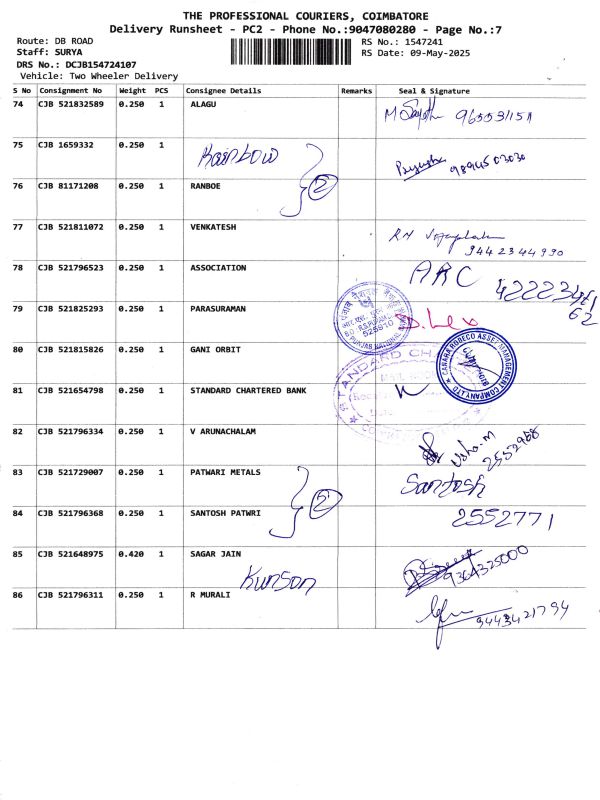 THE PROFESSIONAL COURIERS, COIMBATORE
Delivery Runsheet - PC2 - Phone No.:9047080280 - Page No.:7
Route: DB ROAD
RS No.: 1547241
Staff: SURYA
RS Date: 09-May-2025
DRS No.: DCJB154724107
Vehicle: Two Wheeler Delivery
S No Consignment No Weight PCS Consignee Details Remarks Seal & Signature
74 CJB 521832589 0.250 1 ALAGU
75 CJB 1659332 0.250 1 Rainbow
76 CJB 81171208 0.250 1 RANBOE 2
77 CJB 521811072 0.250 1 VENKATESH
9442344990
78 CJB 521796523 0.250 1 ASSOCIATION ARC
79 CJB 521825293 0.250 1 PARASURAMAN
PUNJAB NATIONAL
80 CJB 521815826 0.250 1 GANI ORBIT
CANARA ROBECO ASSET MANAGEMENT COMPANY LTD
81 CJB 521654798 0.250 1 STANDARD CHARTERED BANK
82 CJB 521796334 0.250 1 V ARUNACHALAM
Usha.M
2552968
83 CJB 521729007 0.250 1 PATWARI METALS Santosh
84 CJB 521796368 0.250 1 SANTOSH PATWRI 2552771
85 CJB 521648975 0.420 1 SAGAR JAIN 9364325000
Kunson
86 CJB 521796311 0.250 1 R MURALI 9443421794